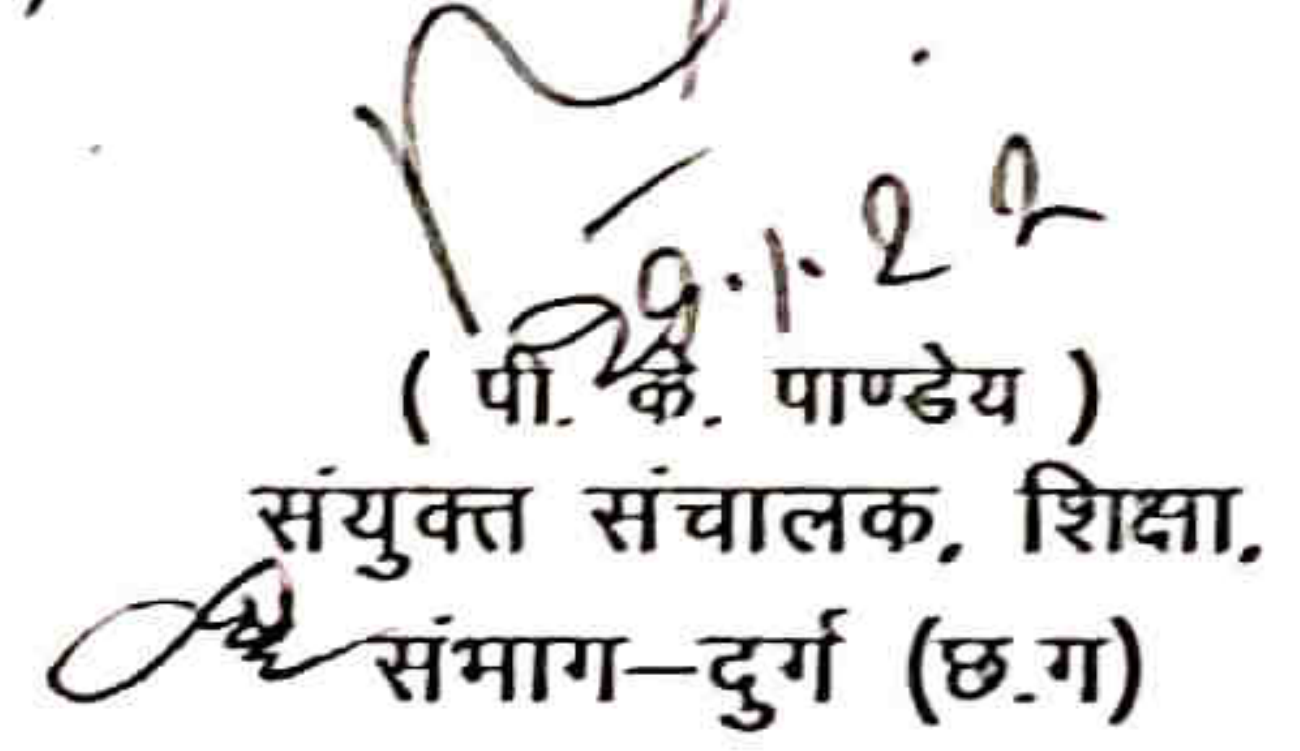 9.1.22
( पी. के. पाण्डेय )
संयुक्त संचालक, शिक्षा,
संभाग–दुर्ग (छ.ग)